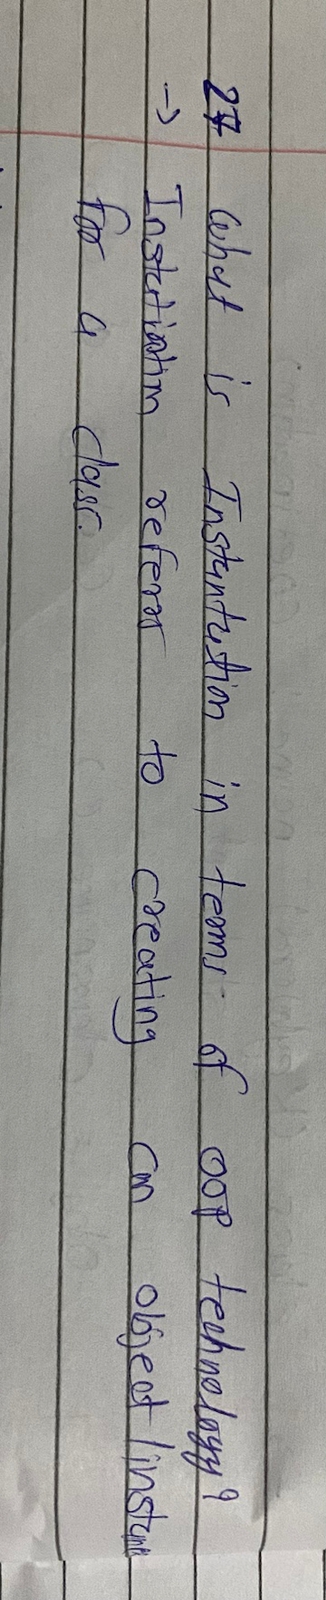 27 What is Instuntution in terms of OOP technology?
→ Instertiation referrs to creating an object/instan
for a class.